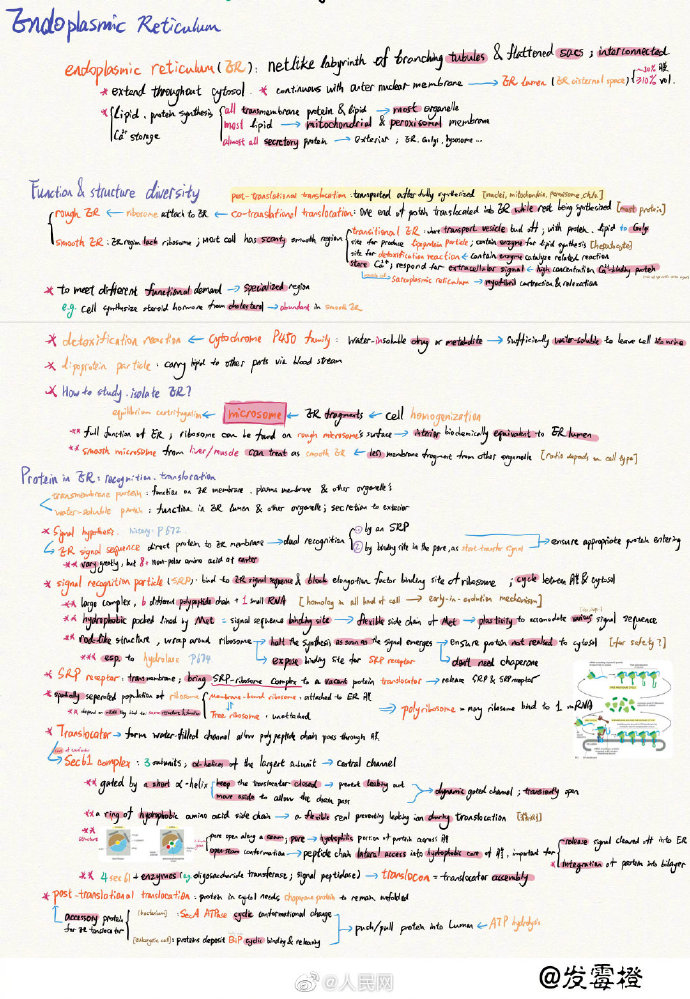 Endoplasmic Reticulum
endoplasmic reticulum (ER): netlike labyrinth of branching tubules & flattened sacs; interconnected
* extend throughout cytosol * continuous with outer nuclear membrane → ER lumen (ER cisternal space)
* lipid, protein synthesis
Ca²⁺ storage
all transmembrane protein & lipid → most organelle
most lipid → mitochondrial & peroxisomal membrane
almost all secretory protein → exterior; ER, Golgi, lysosome...
Function & structure diversity
post-translational translocation: transported after fully synthesized [nuclei, mitochondria, peroxisome, chlo.]
rough ER ← ribosome attach to ER ← co-translational translocation: one end of protein translocated into ER while rest being synthesized [most protein]
smooth ER: ER region lack ribosome; most cell has scanty smooth region
transitional ER: where transport vesicle bud off; with protein, lipid to Golgi
site for produce lipoprotein particle; contain enzyme for lipid synthesis [hepatocyte]
site for detoxification reaction ← contain enzyme catalyze related reaction
store Ca²⁺; respond for extracellular signal ← high concentration Ca²⁺-binding protein
sarcoplasmic reticulum → myofibril contraction & relaxation
* to meet different functional demand → specialized region
e.g. cell synthesize steroid hormone from cholesterol → abundant in smooth ER
* detoxification reaction ← cytochrome P450 family: water-insoluble drug or metabolite → sufficiently water-soluble to leave cell in urine
* lipoprotein particle: carry lipid to other parts via blood stream
* How to study, isolate ER?
equilibrium centrifugation ← microsome ← ER fragments ← cell homogenization
** full function of ER; ribosome can be found on rough microsome's surface → interior biochemically equivalent to ER lumen
** smooth microsome from liver/muscle can treat as smooth ER ← less membrane fragment from other organelle [ratio depends on cell type]
Protein in ER: recognition, translocation
transmembrane protein: function on ER membrane, plasma membrane & other organelle's
water-soluble protein: function in ER lumen & other organelle; secretion to exterior
* Signal hypothesis. history: P672
ER signal sequence direct protein to ER membrane → dual recognition
① by an SRP
② by binding site in the pore, as start-transfer signal
ensure appropriate protein entering
** vary greatly, but 8+ non-polar amino acid at center
* signal recognition particle (SRP): bind to ER signal sequence & block elongation factor binding site of ribosome; cycle between ER膜 & cytosol
** large complex, 6 different polypeptide chain + 1 small RNA [homolog in all kind of cell → early-in-evolution mechanism]
** hydrophobic pocket lined by Met = signal sequence binding site → flexible side chain of Met → plasticity to accomodate various signal sequence
** rod-like structure, wrap around ribosome
halt the synthesis as soon as the signal emerges → ensure protein not realsed to cytosol [for safety?]
*** esp. to hydrolase P674
expose binding site for SRP receptor
don't need chaperone
* SRP receptor: transmembrane; being SRP-ribosome complex to a vacant protein translocator → release SRP & SRP receptor
* spatially seperated population of ribosome
membrane-bound ribosome: attached to ER膜
Free ribosome: unattached
polyribosome = many ribosome bind to 1 mRNA
* Translocator → form water-filled channel allow polypeptide chain pass through 膜
Sec61 complex: 3 subunits; α-helices of the largest subunit → central channel
** gated by a short α-helix
keep the translocator closed → prevent leaking out
move aside to allow the chain pass
dynamic gated channel; transiently open
** a ring of hydrophobic amino acid side chain → a flexible seal preventing leaking ion during translocation
** structure
pore open along a seam; pore → hydrophilic portion of protein across 膜
open seam conformation → peptide chain lateral access into hydrophobic core of 膜, important for
release signal cleaved off into ER
integration of protein into bilayer
** 4 sec61 + enzymes (eg. oligosaccharide transferase; signal peptidase) → translocon = translocator assembly
* post-translational translocation: protein in cytosol needs chaperone protein to remain unfolded
accessory protein
for ER translocator
[bacterium]: SecA ATPase cyclic conformational change
[eukaryotic cell]: proteins deposit BiP cyclic binding & releasing
push/pull protein into lumen ← ATP hydrolysis
@人民网
@发霉橙